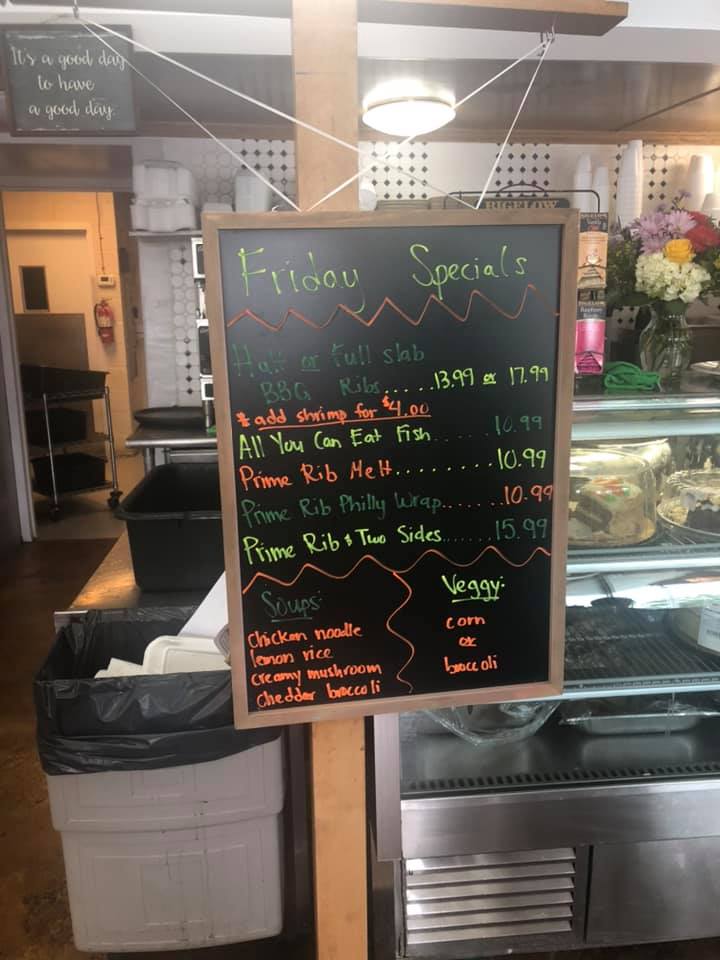 It's a good day
to have
a good day.
BIGELOW
Friday Specials
Half or Full slab
BBQ Ribs.....13.99 or 17.99
* add shrimp for $4.00
All You Can Eat Fish......10.99
Prime Rib Melt........10.99
Prime Rib Philly Wrap......10.99
Prime Rib & Two Sides......15.99
Soups:
Chicken noodle
lemon rice
creamy mushroom
Cheddar broccoli
Veggy:
corn
or
broccoli